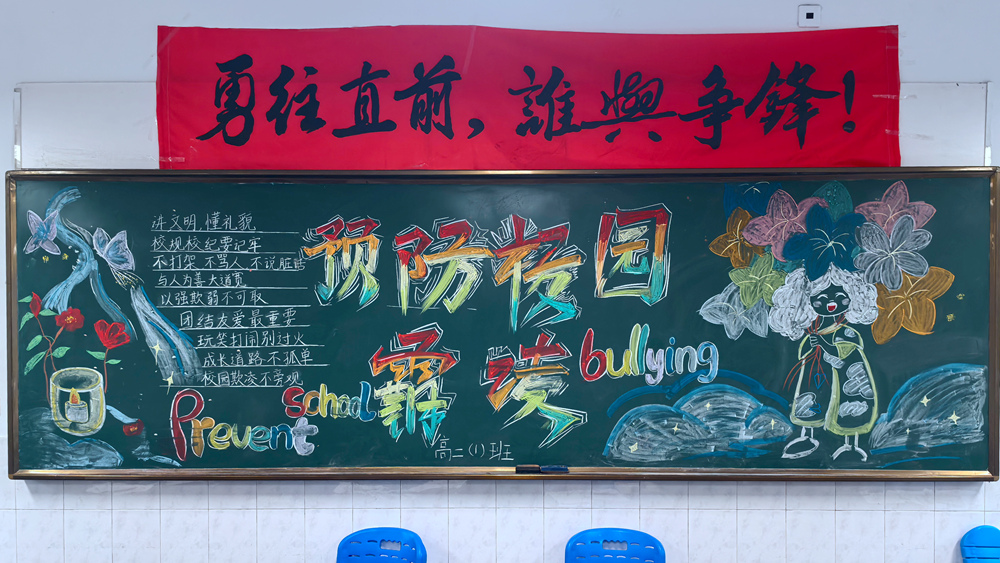 勇往直前，誰與争鋒！
讲文明,懂礼貌
校规校纪要记牢
不打架 不骂人 不说脏话
与人为善大道宽
以强欺弱不可取
团结友爱最重要
玩笑打闹别过火
成长道路不孤单
校园欺凌不旁观
预防校园
霸凌
Prevent school bullying
高二(1)班